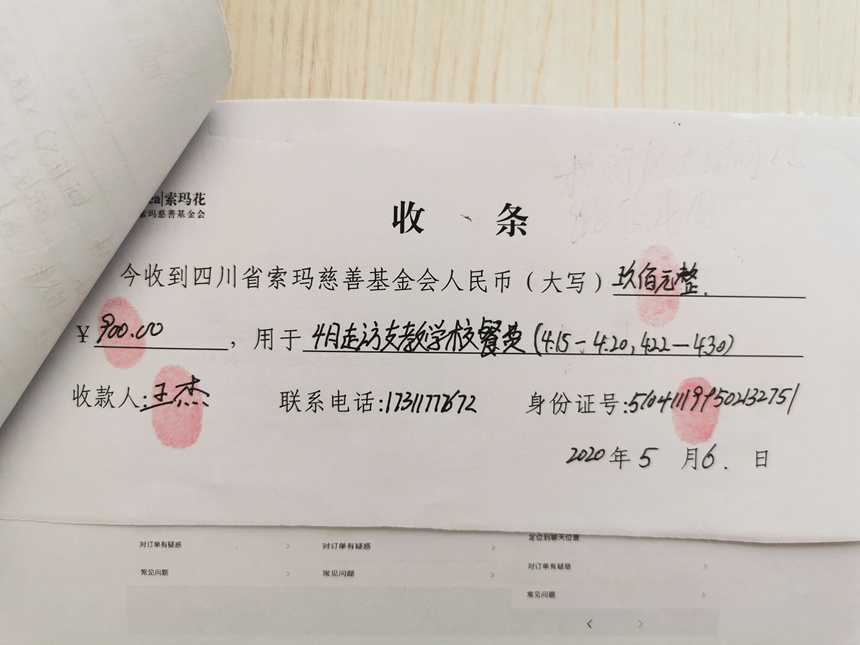 ca|索玛花
索玛慈善基金会
收 条
今收到四川省索玛慈善基金会人民币（大写）玖佰元整.
¥ 900.00 ，用于 4月走访支教学校餐费(4.15-4.20,4.22-4.30)
收款人:王杰 联系电话:1731177672 身份证号:510411199502132751
2020年 5 月 6. 日
对订单有疑惑 对订单有疑惑 定位到聊天位置
常见问题 常见问题 对订单有疑惑
常见问题